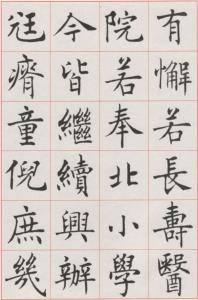 有懈若長壽醫
院若奉北小學
今皆繼續興辦
迋瘠童倪庶幾